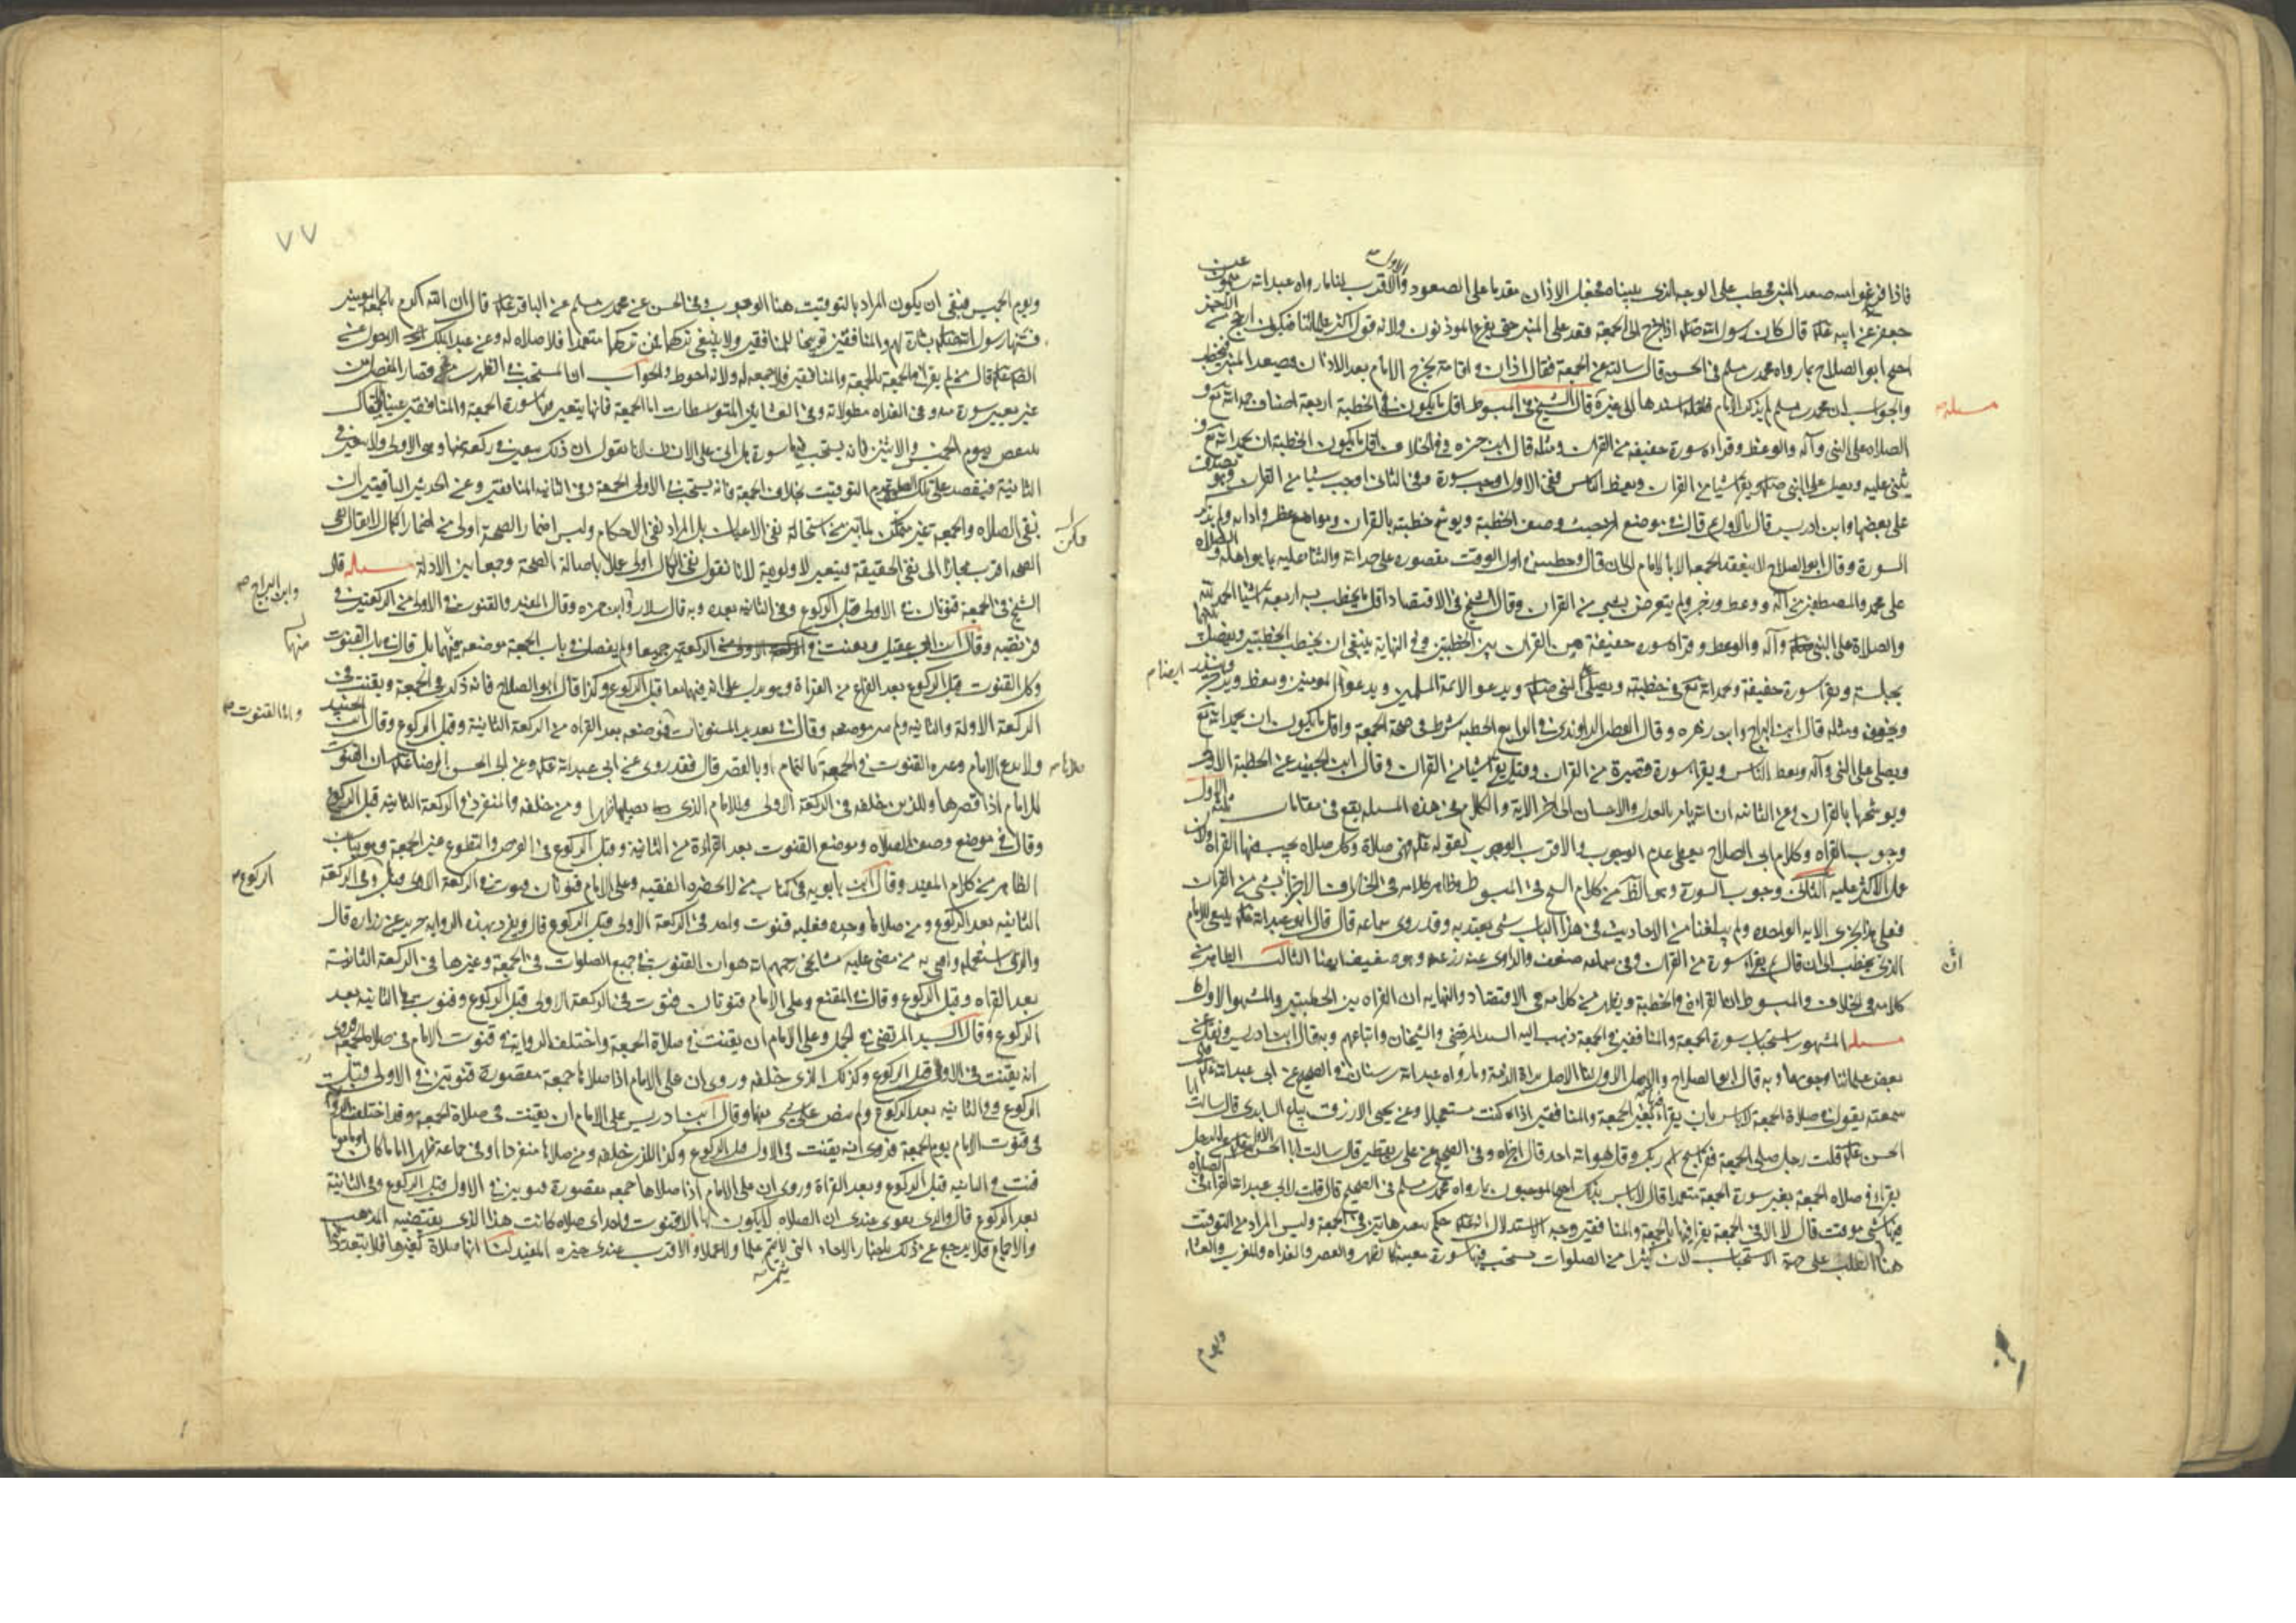 فاذا فرغوا منه صعد المنبر فخطب على الوجه الذى بيناه فجعل الاذان مقدما على الصعود والاقرب الاول لنا ما رواه عبد الله بن ميمون عن
جعفر عن ابيه عليه قال كان رسول الله صلى اذا خرج الى الجمعة قعد على المنبر حتى يفرغ الموذنون ولانه قول اكثر علمائنا فيكون ارجح
احتج ابو الصلاح بما رواه محمد بن مسلم فى الحسن قال سالته عن الجمعة فقال اذان و اقامة يخرج الامام بعد الاذان فيصعد المنبر فيخطب
والجواب ان محمد بن مسلم لم يذكر الامام فلعله اسندها الى غيره قال الشيخ فى المبسوط اقل ما يكون فى الخطبة اربعة اصناف حمد الله تع و
مسئلة
الصلاه على النبى وآله والوعظ وقراءه سورة خفيفه من القران ومثله قال ابن حمزه وفى الخلاف اقل ما يكون الخطبة ان يحمد الله تع و
يثنى عليه ويصلى على النبى صلى ويقرا شيا من القران ويعظ الناس ففى الاول اوجب سورة وفى الثانى اوجب شيا من القران
على بعضها وابن ادريس قال بالاول ثم قال فى موضع اخر حيث وصف الخطبة ويوشح خطبته بالقران ومواعظه وادابه ولم يذكر
السورة وقال ابو الصلاح لا ينعقد الجمعه الا بالامام الى ان قال وخطبتين فى اول الوقت مقصوره على حمد الله والثنا عليه بما هو اهله والصلاه
على محمد والمصطفين من آله ووعظ وزجر ولم يتعرض بشى من القران وقال الشيخ فى الاقتصاد اقل ما يخطب به اربعة اشيا الحمد لله
والصلاة على النبى وآله والوعظ وقراة سوره خفيفة من القران بين الخطبتين وفى النهاية ينبغى ان يخطب الخطبتين ويفصل بينهما
بجلسة ويقرا سورة خفيفة ويحمد الله تع فى خطبته ويصلى على النبى صلى ويدعو لائمة المسلمين ويدعو ايضا للمومنين ويعظ ويزجر وينذر
ويخوف ومثله قال ابن البراج وابن زهره وقال القطب الراوندى فى الرايع الخطبه شرط فى صحة الجمعة واقل ما يكون ان يحمد الله تع
ويصلى على النبى وآله ويعظ الناس ويقرا سورة قصيرة من القران وقيل يقرا شيا من القران وقال ابن الجنيد عن الخطبة الاولى
ويوشحها بالقران وعن الثانيه ان الله يامر بالعدل والاحسان الى اخر الاية والكلام فى هذه المسله يقع فى مقامات ثلثه الاول
وجوب القراه وكلام ابى الصلاح يعطى عدم الوجوب والاقرب الوجوب لقوله عليه فهى صلاة وكل صلاه يجب فيها القراة ولان
عمل الاكثر عليه الثانى وجوب السورة وهو الظ من كلام الشيخ فى المبسوط وظاهر كلامه فى الخلاف الاجزا بشى من القران
فعلى هذا يجزى الاية الواحده ولم يبلغنا من الاحاديث فى هذا الباب شى يعتد به وقد روى سماعه قال قال ابو عبد الله عليه ينبغى للامام
الذى يخطب الى ان قال ثم يقرا سورة من القران وفى سماعه ضعف والراوى عنه زرعه وهو ضعيف ايضا الثالث الظاهر من
ان
كلامه فى الخلاف والمبسوط ان القراءة فى الخطبة ويظهر من كلامه فى الاقتصاد والنهايه ان القراه بين الخطبتين والمشهور الاول
مسله المشهور استحباب سورة الجمعة والمنافقين فى الجمعة ذهب اليه السيد المرتضى والشيخان واتباعهم وبه قال ابن ادريس ونقل عن
بعض علمائنا وجوبهما وبه قال ابو الصلاح والاصل الاول لنا الاصل براة الذمة وما رواه عبد الله بن سنان فى الصحيح عن ابى عبد الله عليه قال
سمعته يقول فى صلاة الجمعة لا باس بان يقرا فيها بغير الجمعة والمنافقين اذا كنت مستعجلا وعن يحيى الازرق بياع السابرى قال سالت ابا
الحسن عليه قلت رجل صلى الجمعة فقرا سبح اسم ربك وقل هو الله احد قال اجزاه وفى الصحيح عن على بن يقطين قال سالت ابا الحسن الاول عليه عن الرجل
يقرا فى صلاه الجمعة بغير سورة الجمعة متعمدا قال لا باس بذلك احتج الموجبون بما رواه محمد بن مسلم فى الصحيح قال قلت لابى عبد الله القراة فى الصلاه
فيها شى موقت قال لا الا فى الجمعة يقرا فيها بالجمعة والمنافقين وجه الاستدلال انه عليه حكم بتعين هاتين فى الجمعة وليس المراد من التوقيت
هنا الطلب على جهة الاستحباب لان كثيرا من الصلوات يستحب فيها سورة معينة كالظهر والعصر والغداه والمغرب والعشاء
ويوم
٧٧
ويوم الخميس فبقى ان يكون المراد بالتوقيت هنا الوجوب وفى الحسن عن محمد بن مسلم عن الباقر عليه قال ان الله اكرم بالجمعة المومنين
فسنها رسول الله صلى بشارة لهم والمنافقين توبيخا للمنافقين ولا ينبغى تركها فمن تركها متعمدا فلا صلاه له وعن عبد الملك الاحول عن
الصادق عليه قال من لم يقرا فى الجمعة بالجمعة والمنافقين فلا جمعه له ولانه احوط والجواب ان المستحب فى الظهرين قصار المفصل من
غير تعيين سورة وفى الغداه مطولاته وفى العشائين المتوسطات اما الجمعة فانها يتعين فيها سورة الجمعة والمنافقين عينا لا يقال
ينتقض بيوم الخميس والاثنين فانه يستحب فيهما سورة هل اتى على الانسان لانا نقول ان ذلك يتعين فى ركعة منها وهى الاولى ولا يتعين فى
الثانية فيقصد على تلك الصلوة عدم التوقيت بخلاف الجمعة فانه يستحب فى الاولى الجمعة وفى الثانيه المنافقين وعن الحديثين الباقيين ان
نفى الصلاه والجمعة غير ممكن لما تبين من استحالة نفى الاعيان بل المراد نفى الاحكام وليس اضمار الصحة اولى من اضمار الكمال لا يقال نفى
الصحه اقرب مجازا الى نفى الحقيقة فيتعين لاولويه لانا نقول نفى الكمال اولى عملا باصالة الصحة وجمعا بين الادلة مسله قال
الشيخ فى الجمعة قنوتان فى الاولى قبل الركوع وفى الثانيه بعده وبه قال سلار وابن حمزه وقال المفيد والقنوت فى الاولى من الركعتين فى
وابن البراج
فريضه وقال ابن ابى عقيل ويقنت فى الركعتين جميعا ولم يفصل فى باب الجمعة موضعه فيهما بل قال فى باب القنوت
منهما
وكل القنوت قبل الركوع بعد الفراغ من القراة وهو يدل على انه فيهما معا قبل الركوع وكذا قال ابو الصلاح فانه ذكر فى الجمعة ويقنت فى
الركعة الاولة والثانيه ولم يبين موضعه وقال فى تعديد المسنونات فموضعه بعد القراه من الركعة الثانية وقبل الركوع وقال ابن الجنيد
واما القنوت
ولا يدع الامام وغيره القنوت فى الجمعة بالتمام او بالقصر قال فقد روى عن ابى عبد الله عليه وعن ابى الحسن الرضا عليه ان القنوت
للامام اذا قصرها وللذين خلفه فى الركعة الاولى وللامام الذى يصليها اربعا ومن خلفه والمنفرد فى الركعة الثانيه قبل الركوع
وقال فى موضع وصف الصلاه وموضع القنوت بعد القراءة من الثانية وقبل الركوع فى الفرض والتطوع غير الجمعة وهو يباين
الظاهر من كلام المفيد وقال ابن بابويه فى كتاب من لا يحضره الفقيه وعلى الامام قنوتان قنوت فى الركعة الاولى قبل الركوع وفى الركعة
الثانيه بعد الركوع ومن صلاها وحده فعليه قنوت واحد فى الركعة الاولى قبل الركوع قال وتفرد بهذه الروايه حريز عن زراره قال
والذى استعمله وافتى به من مضى عليه مشايخى رحمهم الله هو ان القنوت فى جميع الصلوات فى الجمعة وغيرها فى الركعة الثانية
بعد القراه وقبل الركوع وقال فى المقنع وعلى الامام قنوتان قنوت فى الركعة الاولى قبل الركوع وقنوت فى الثانيه بعد
الركوع وقال السيد المرتضى فى الجمل وعلى الامام ان يقنت فى صلاة الجمعة واختلف الرواية فى قنوت الامام فى صلاة الجمعة فروى
انه يقنت فى الاولى قبل الركوع وكذلك الذى خلفه وروى ان على الامام اذا صلاها جمعة مقصورة قنوتين فى الاولى قبل
الركوع وفى الثانيه بعد الركوع ولم ينص على شى منهما وقال ابن ادريس على الامام ان يقنت فى صلاة الجمعة وقد اختلف الرواية
فى قنوت الامام يوم الجمعة فروى انه يقنت فى الاولى قبل الركوع وكذا الذين خلفه ومن صلاها منفردا او فى جماعة ظهرا اماما كان او ماموما
قنت فى الثانيه قبل الركوع وبعد القراة وروى ان على الامام اذا صلاها جمعه مقصورة قنوتين فى الاولى قبل الركوع وفى الثانية
بعد الركوع قال والذى يقوى عندى ان الصلاه لا يكون لها الا قنوت واحد اى صلاه كانت هذا الذى يقتضيه المذهب
والاجماع فلا يرجع عن ذلك باخبار الاحاد التى لا يثمر علما ولا عملا والاقرب عندى خيره المفيد لنا انها صلاة كغيرها فلا يتعدد فيها
يثمر